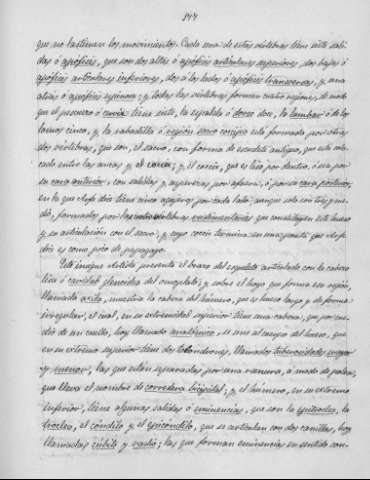 144
que no lastiman los movimientos. Cada una de estas vértebras tiene siete salidas
ó apófisis, que son dos altas ó apófisis articulares superiores, dos bajas ó
apófisis articulares inferiores, dos a los lados ó apófisis transversas, y una
atrás ó apófisis espinosa; y todas las vértebras forman cuatro regiones, de modo
que el pescuezo ó cerviz tiene siete, la espalda ó dorso doce, la lombar ó de los
lomos cinco, y la rabadilla ó región sacro coxígea esta formada por otras
dos vértebras, que son, el sacro, con forma de escudete antiguo, que está colocado
entre las ancas y el coxis; y el coxis, que es liso por dentro, ó sea por
su cara anterior, con salidas y asperezas por afuera, ó por su cara posterior,
en la que Arfe dió tiene cinco agujeros por cada lado; aunque solo con tres y medio,
formados por las vértebras rudimentarias que constituyen este hueso
y su articulación con el sacro; y cuyo coccis termina en una punta que Arfe
dió es como pico de papagayo.
Este insigne Artista presenta el brazo del esqueleto articulado con la cabera
lisa ó cavidad glenoidea del omoplato; y sobre el hoyo que forma esa región,
llamada axila, muestra la cabeza del húmero, que es hueso largo y de forma
irregular, el cual, en su extremidad superior tiene una cabeza, que por medio
de un cuello, hoy llamado anatómico, se une al cuerpo del hueso, que
en su extremo superior tiene dos tolondrones, llamados tuberosidades mayor
y menor, las que están separadas por una ranura, a modo de polea,
que lleva el nombre de corredera bicipital; y el húmero, en su extremo
inferior, tiene algunas salidas ó eminencias, que son la epitroclea, la
troclea, el cóndilo y el epicóndilo, que se articulan con dos canillas, hoy
llamadas cúbito y radio; las que forman eminencias en sentido con-